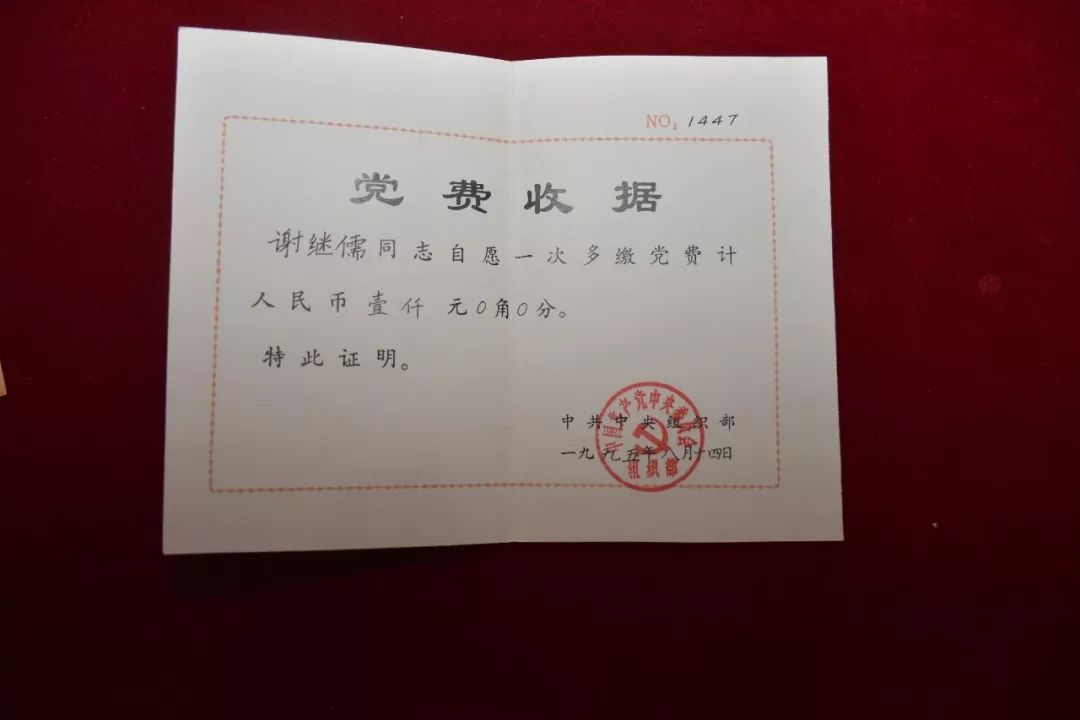 NO: 1447
党费收据
谢继儒同志自愿一次多缴党费计
人民币壹仟元0角0分。
特此证明。
中共中央组织部
一九九五年八月十四日
中国共产党中央委员会
组织部